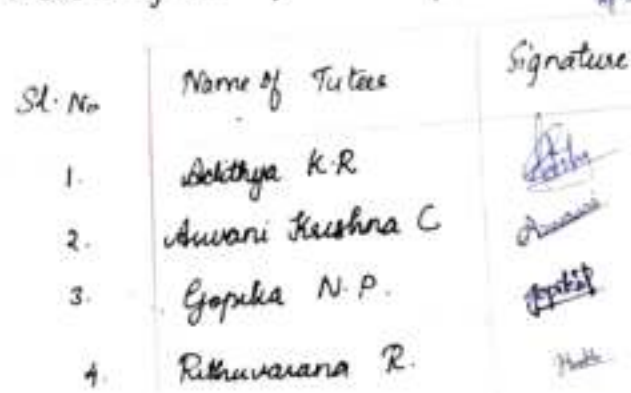 Sl. No Name of Tutees Signature
1. Adithya K.R
2. Auvani Krushna C Auvani
3. Gopika N.P. Gopika
4. Rithuvarana R.